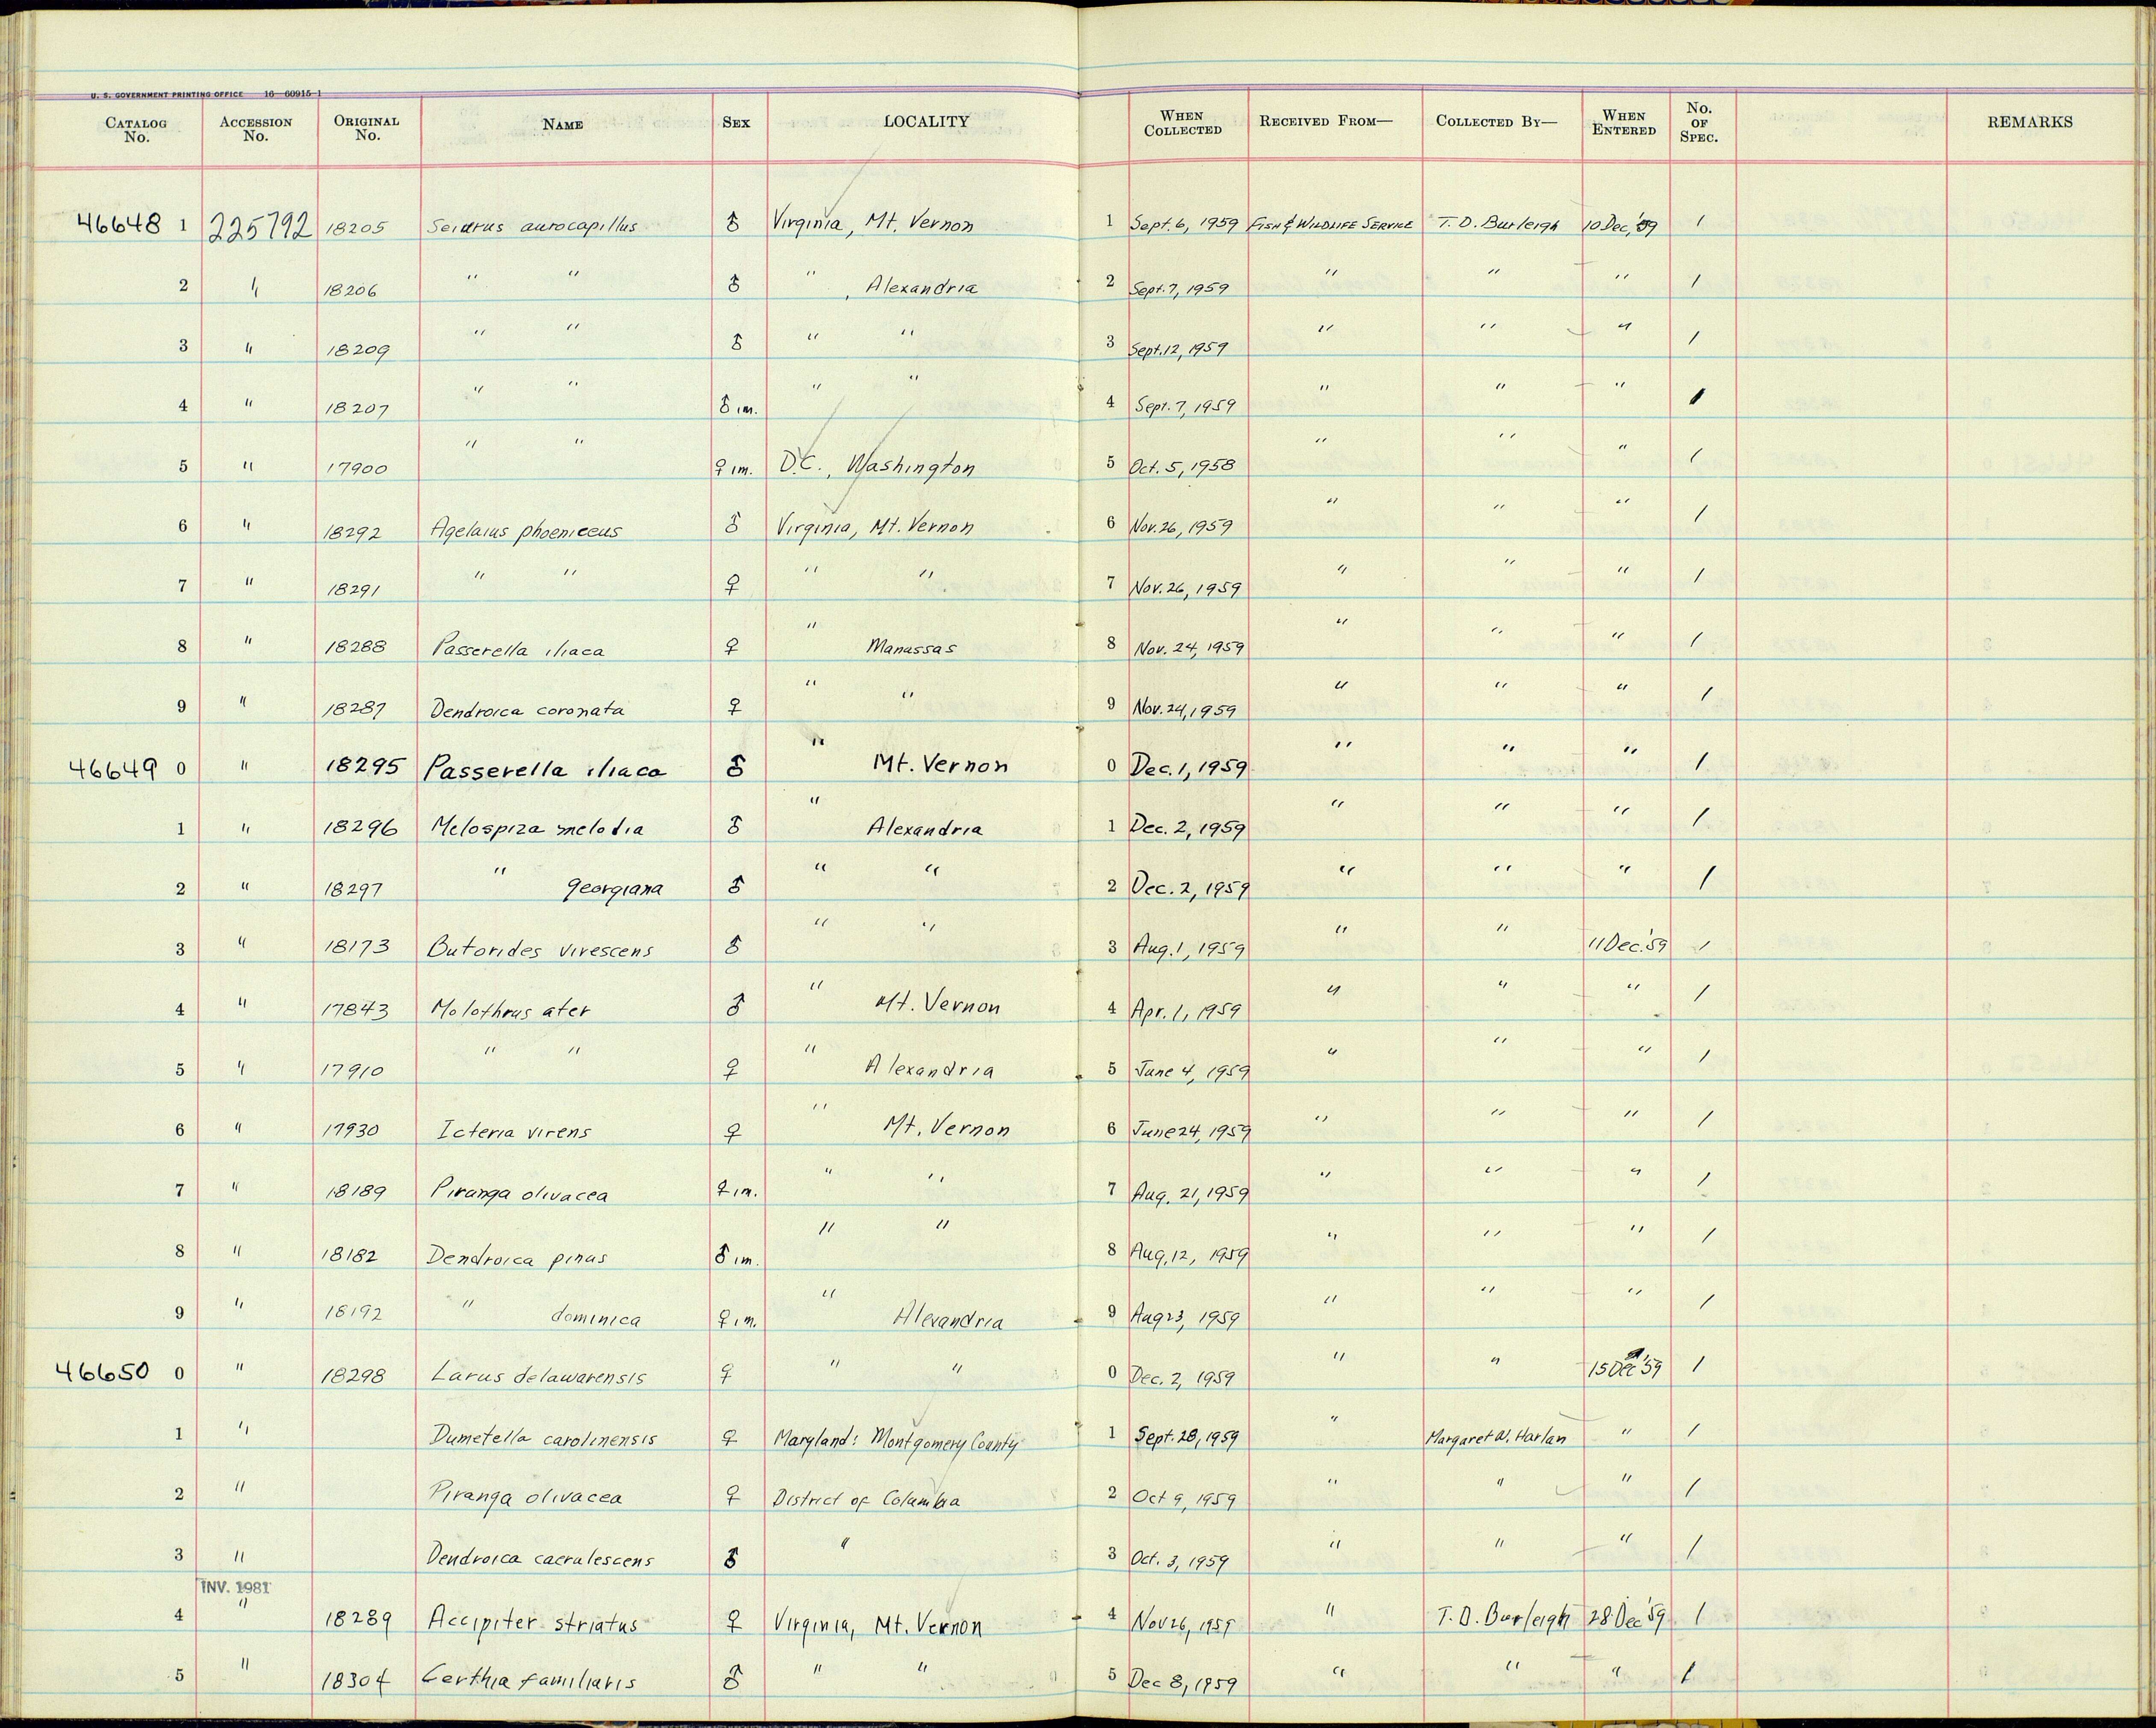 U. S. GOVERNMENT PRINTING OFFICE 16—60915-1
CATALOG No. ACCESSION No. ORIGINAL No. NAME SEX LOCALITY WHEN COLLECTED RECEIVED FROM— COLLECTED BY— WHEN ENTERED No. OF SPEC. REMARKS
46648 1 225792 18205 Seiurus aurocapillus ♂ Virginia, Mt. Vernon 1 Sept. 6, 1959 FISH & WILDLIFE SERVICE T. D. Burleigh 10 Dec, '59 1
2 " 18206 " " ♂ " , Alexandria 2 Sept. 7, 1959 " " " 1
3 " 18209 " " ♂ " " 3 Sept. 12, 1959 " " " 1
4 " 18207 " " ♂ im. " " 4 Sept. 7, 1959 " " " 1
5 " 17900 " " ♀ im. D.C., Washington 5 Oct. 5, 1958 " " " 1
6 " 18292 Agelaius phoeniceus ♂ Virginia, Mt. Vernon 6 Nov. 26, 1959 " " " 1
7 " 18291 " " ♀ " " 7 Nov. 26, 1959 " " " 1
8 " 18288 Passerella iliaca ♀ " Manassas 8 Nov. 24, 1959 " " " 1
9 " 18287 Dendroica coronata ♀ " " 9 Nov. 24, 1959 " " " 1
46649 0 " 18295 Passerella iliaca ♂ " Mt. Vernon 0 Dec. 1, 1959 " " " 1
1 " 18296 Melospiza melodia ♂ " Alexandria 1 Dec. 2, 1959 " " " 1
2 " 18297 " georgiana ♂ " " 2 Dec. 2, 1959 " " " 1
3 " 18173 Butorides virescens ♂ " " 3 Aug. 1, 1959 " " 11 Dec. '59 1
4 " 17843 Molothrus ater ♂ " Mt. Vernon 4 Apr. 1, 1959 " " " 1
5 " 17910 " " ♀ " Alexandria 5 June 4, 1959 " " " 1
6 " 17930 Icteria virens ♀ " Mt. Vernon 6 June 24, 1959 " " " 1
7 " 18189 Piranga olivacea ♀ im. " " 7 Aug. 21, 1959 " " " 1
8 " 18182 Dendroica pinus ♂ im. " " 8 Aug, 12, 1959 " " " 1
9 " 18192 " dominica ♀ im. " Alexandria 9 Aug 23, 1959 " " " 1
46650 0 " 18298 Larus delawarensis ♀ " " 0 Dec. 2, 1959 " " 15 Dec '59 1
1 " Dumetella carolinensis ♀ Maryland: Montgomery County 1 Sept. 28, 1959 " Margaret W. Harlan " 1
2 " Piranga olivacea ♀ District of Columbia 2 Oct 9, 1959 " " " 1
3 " Dendroica caerulescens ♂ " 3 Oct. 3, 1959 " " " 1
INV. 1981
4 " 18289 Accipiter striatus ♀ Virginia, Mt. Vernon 4 Nov 26, 1959 " T. D. Burleigh 28 Dec '59 1
5 " 18304 Certhia familiaris ♂ " " 5 Dec 8, 1959 " " " 1